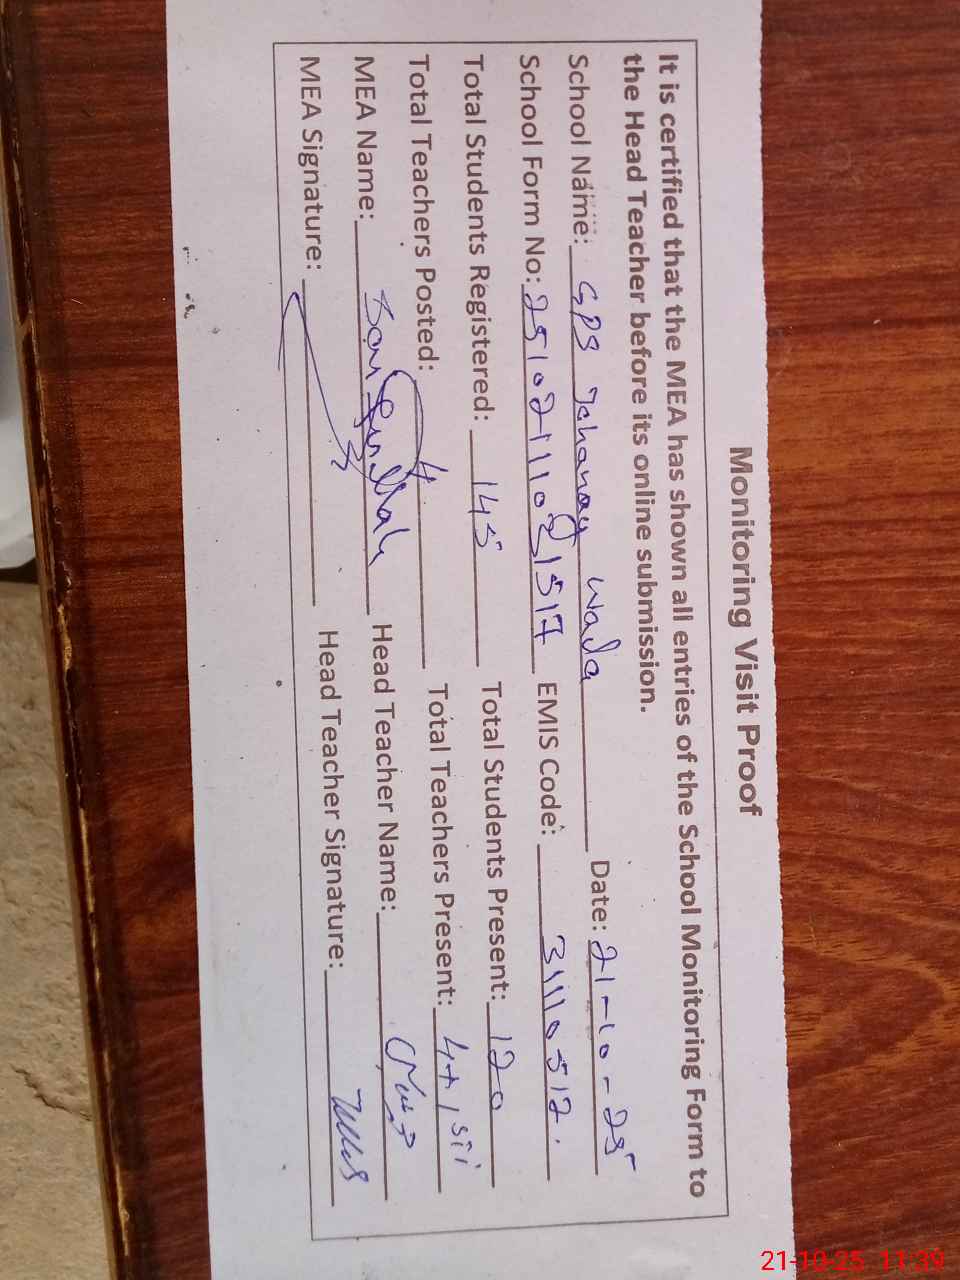 Monitoring Visit Proof
It is certified that the MEA has shown all entries of the School Monitoring Form to
the Head Teacher before its online submission.
School Name: GPS Jehanay Wada Date: 21-10-25
School Form No: EMIS Code:
Total Students Registered: 145 Total Students Present: 120
Total Teachers Posted: 4 Total Teachers Present: 4+1
MEA Name: Head Teacher Name:
MEA Signature: Head Teacher Signature:
21-10-25 11:39